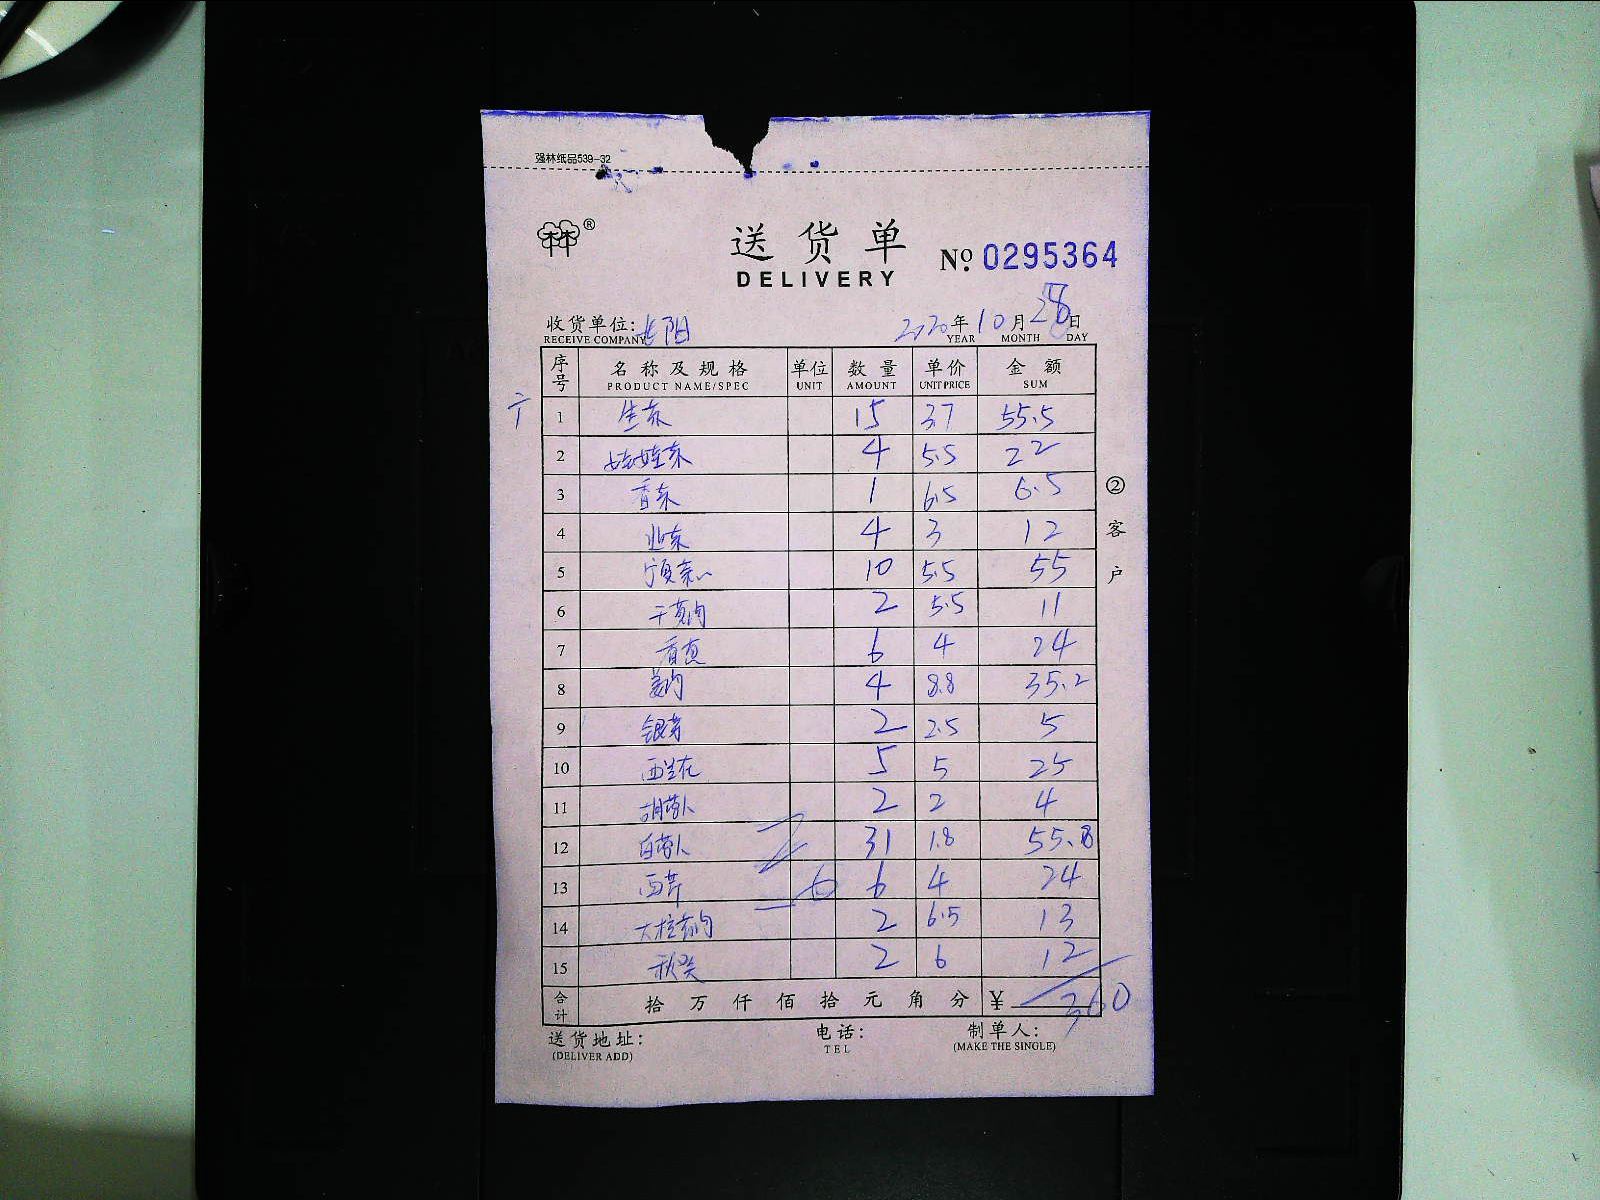 强林纸品539-32
林®
送货单
DELIVERY
No. 0295364
收货单位:长阳 2020年10月28日
RECEIVE COMPANY YEAR MONTH DAY
序号 名称及规格 单位 数量 单价 金额
PRODUCT NAME/SPEC UNIT AMOUNT UNIT PRICE SUM
1 生菜 15 3.7 55.5
2 娃娃菜 4 5.5 22
3 香菜 1 6.5 6.5
4 4 3 12
5 宁夏菜心 10 5.5 55
6 干葱肉 2 5.5 11
7 香葱 6 4 24
8 姜肉 4 8.8 35.2
9 银芽 2 2.5 5
10 西兰花 5 5 25
11 胡萝卜 2 2 4
12 白萝卜 31 1.8 55.8
13 西芹 6 6 4 24
14 2 6.5 13
15 秋葵 2 6 12
合计 拾万仟佰拾元角分 ¥ 360
送货地址: 电话: 制单人:
(DELIVER ADD) TEL (MAKE THE SINGLE)
②客户